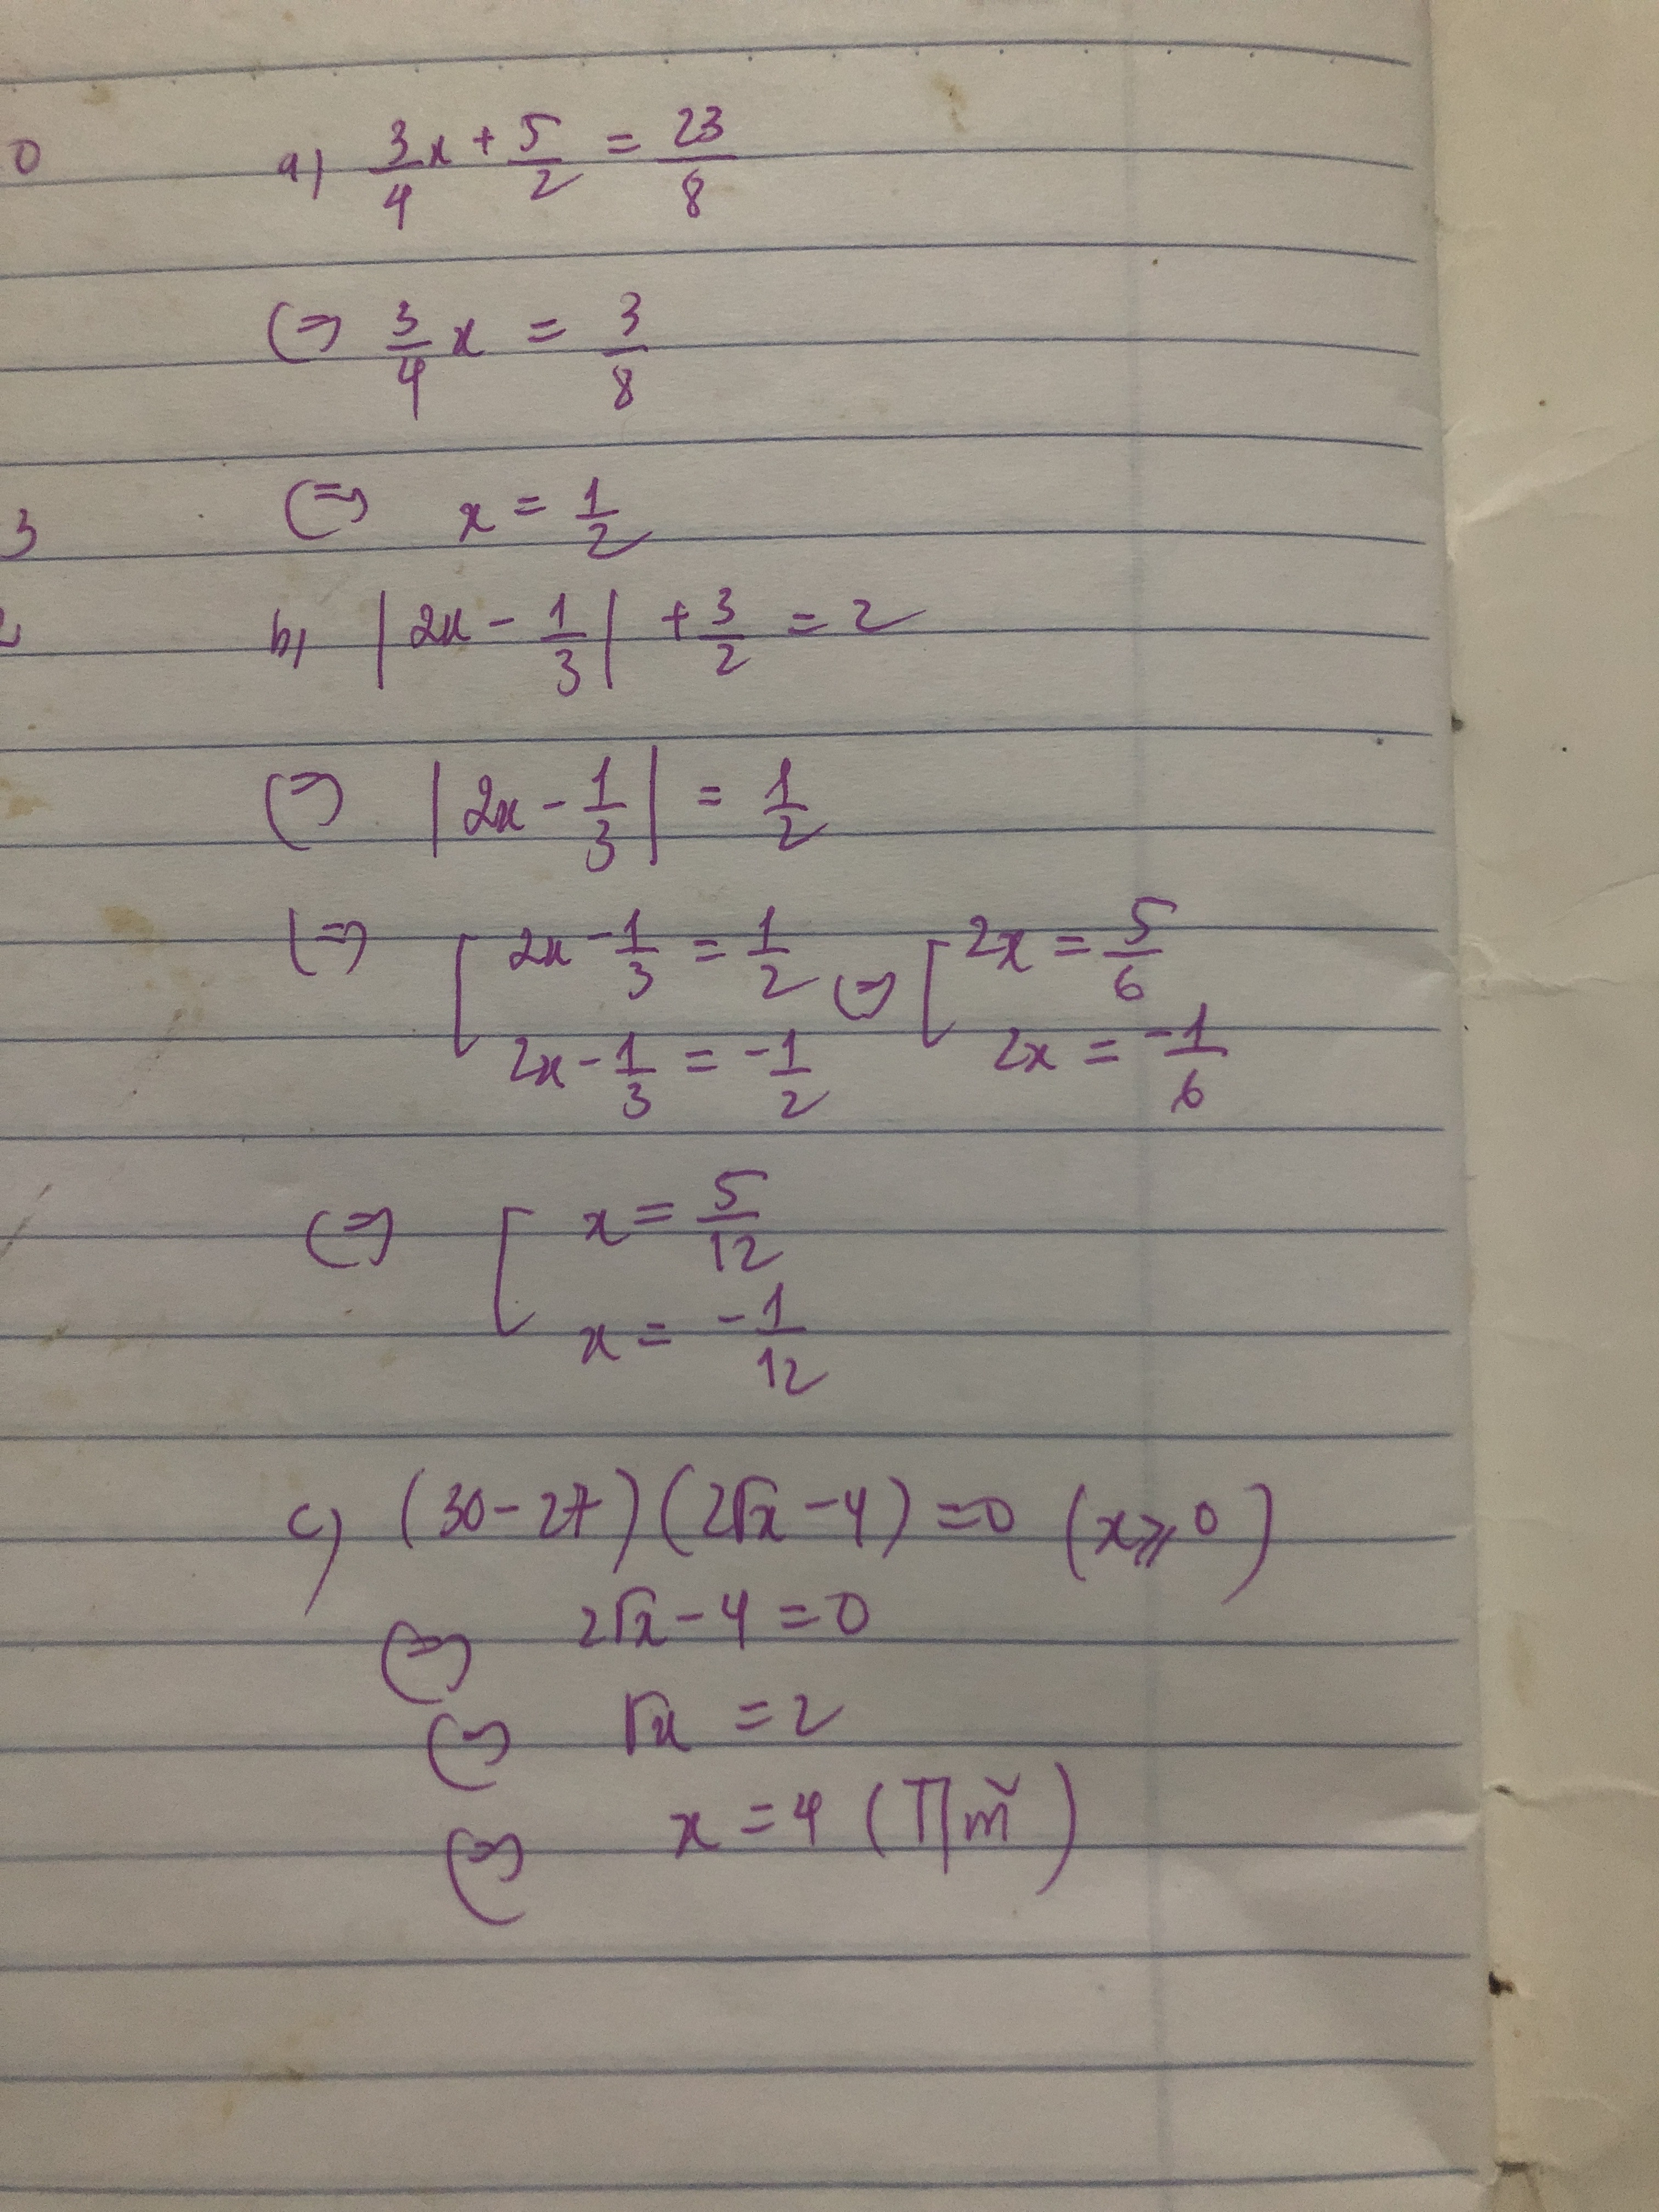 0
a) 3/4 x + 5/2 = 23/8
(=) 3/4 x = 3/8
3
(=) x = 1/2
b) |2x - 1/3| + 3/2 = 2
(=) |2x - 1/3| = 1/2
(=) [ 2x - 1/3 = 1/2 (=) [ 2x = 5/6
2x - 1/3 = -1/2 2x = -1/6
(=) [ x = 5/12
x = -1/12
c) (30 - 27)(2√x - 4) = 0 (x ⩾ 0)
(=) 2√x - 4 = 0
(=) √x = 2
(=) x = 4 (